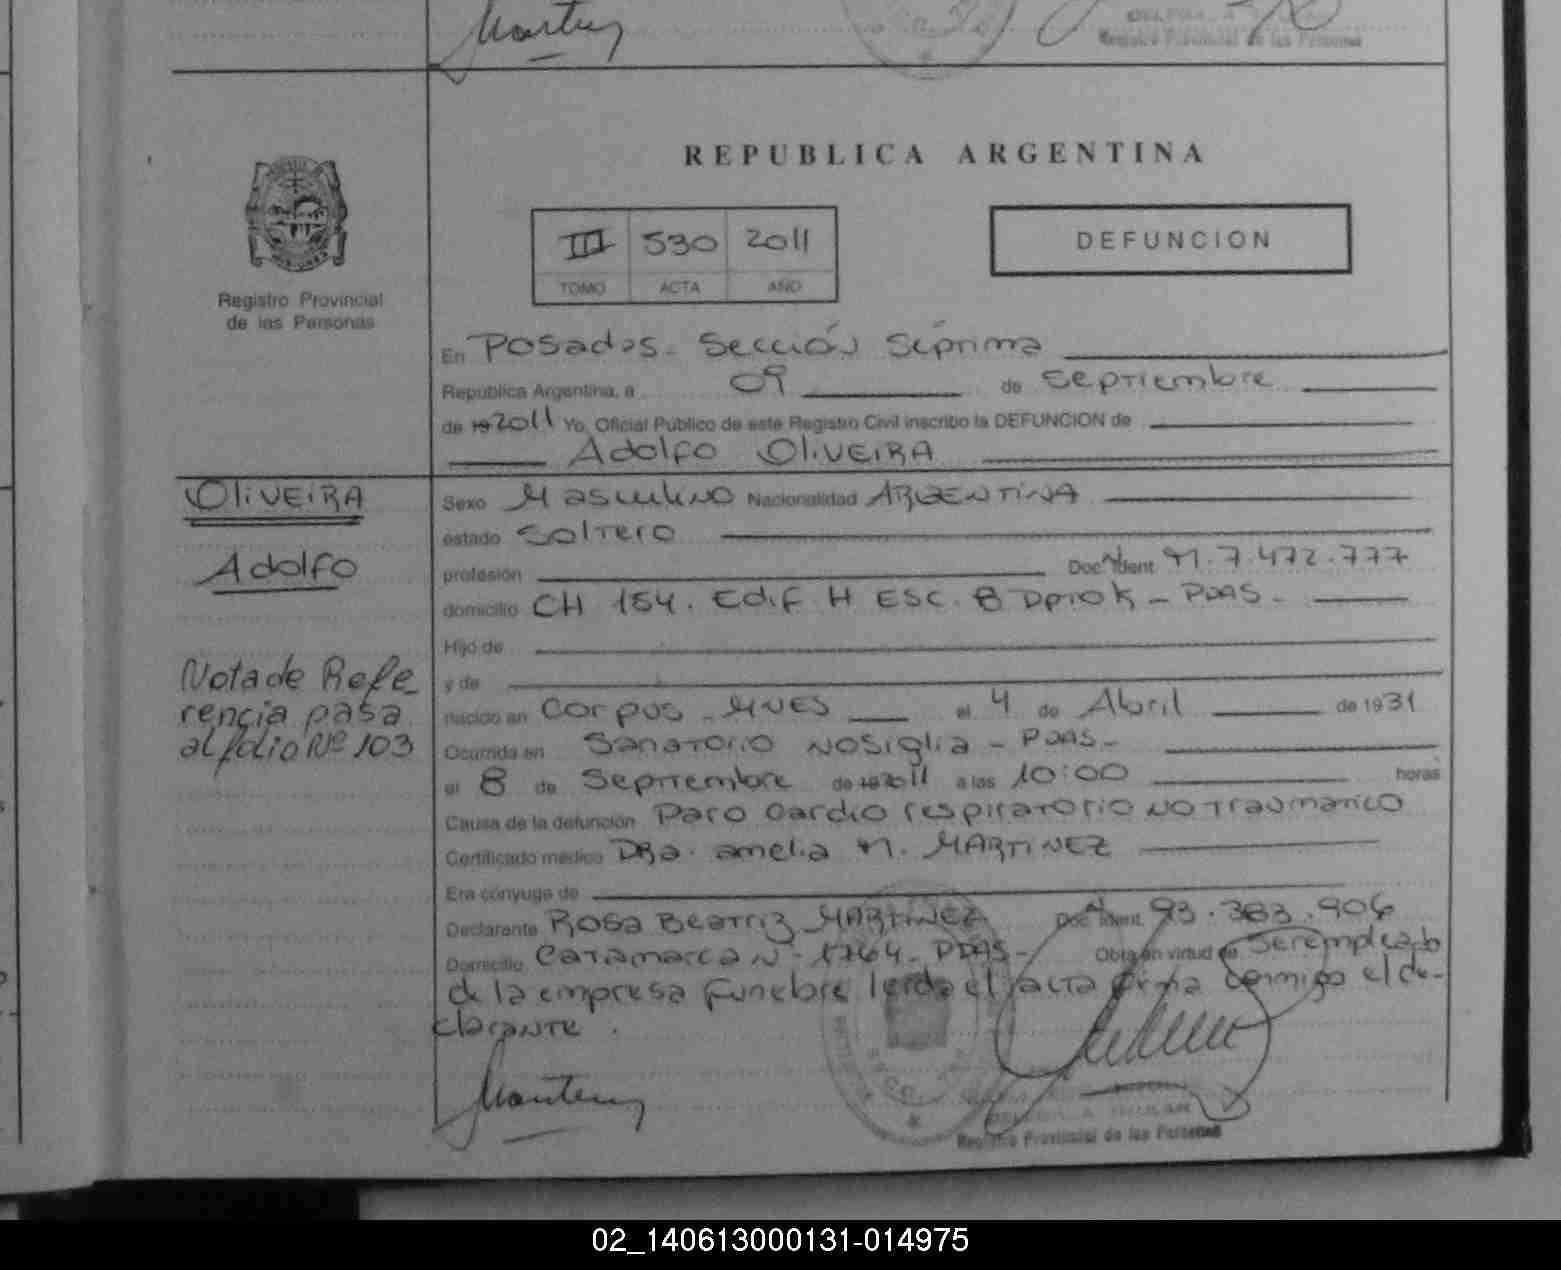 Registro Provincial de las Personas
REPUBLICA ARGENTINA
MISIONES
Registro Provincial
de las Personas
III 530 2011
TOMO ACTA AÑO
DEFUNCION
En Posadas. Sección Séptima
República Argentina, a 09 de Septiembre
de 19 2011 Yo, Oficial Público de este Registro Civil inscribo la DEFUNCION de
Adolfo OLIVEIRA
OLIVEIRA
Adolfo
Nota de Refe
rencia pasa
al folio Nº 103
Sexo Masculino Nacionalidad ARGENTINA
estado Soltero
profesión Doc. Ident. M. 7.472.777
domicilio CH 154. Edif H ESC. 8 Dpto K - PDAS-
Hijo de
y de
nacido en Corpus - MNES el 4 de Abril de 1931
Ocurrida en Sanatorio NOSiglia - PDAS-
el 8 de Septiembre de 19 2011 a las 10:00 horas
Causa de la defunción Paro Cardio respiratorio NO Traumatico
Certificado médico DRa. amelia M. MARTINEZ
Era cónyuge de
Declarante ROSA BEATRIZ MARTINEZ Doc. Ident. 93.383.906
Domicilio Catamarca N- 1764- PDAS- Obra en virtud de Ser empleado
de la empresa Funebre leida el acta firma conmigo el de-
clarante.
TITULAR
Registro Provincial de las Personas
02_140613000131-014975